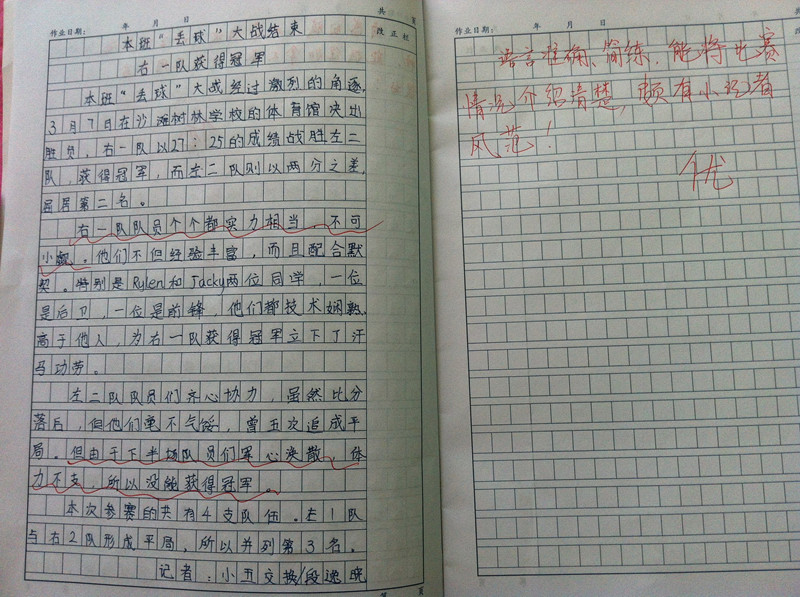 共 页
作业日期: 年 月 日
改正栏
本班“丢球”大战结束
右一队获得冠军
本班“丢球”大战经过激烈的角逐,
3月7日在沙滩树林学校的体育馆决出
胜负,右一队以27:25的成绩战胜左二
队,获得冠军,而左二队则以两分之差,
屈居第二名。
右一队队员个个都实力相当,不可
小觑。他们不但经验丰富,而且配合默
契。特别是Rylen和Jacky两位同学,一位
是后卫,一位是前锋,他们都技术娴熟,
高于他人,为右一队获得冠军立下了汗
马功劳。
左二队队员们齐心协力,虽然比分
落后,但他们毫不气馁,曾五次追成平
局。但由于下半场队员们军心涣散,体
力不支,所以没能获得冠军。
本次参赛的共有4支队伍。左1队
与右2队形成平局,所以并列第3名。
记者:小五交换/段逸晓
作业日期: 年 月 日
语言准确、简练,能将比赛
情况介绍清楚,颇有小记者
风范!
优